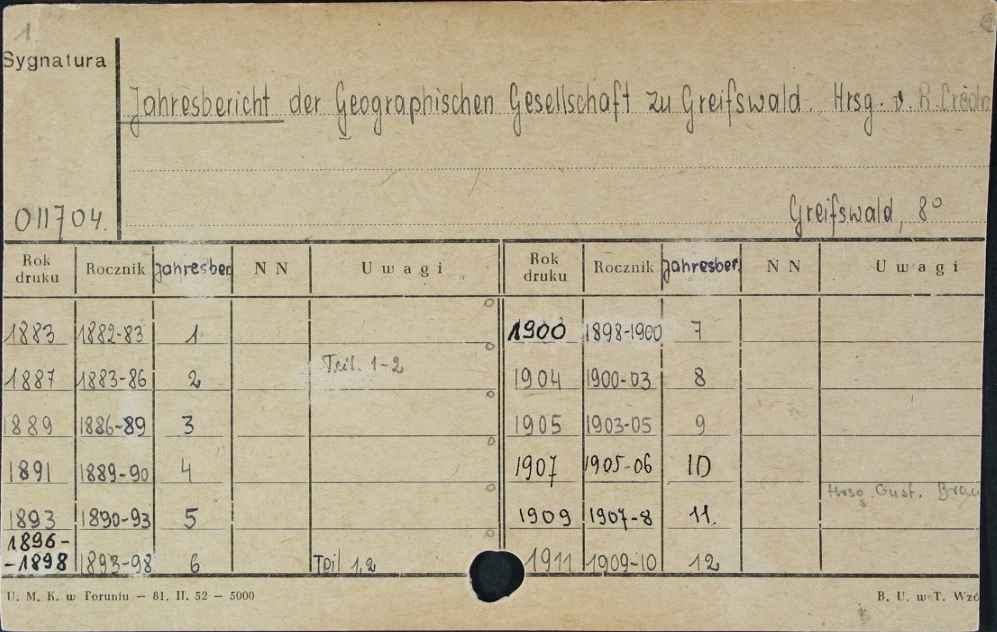 1
Sygnatura
Jahresbericht der Geographischen Gesellschaft zu Greifswald. Hrsg. v. R. Credn
011704.
Greifswald, 8°
Rok druku Rocznik Jahresber. N N Uwagi Rok druku Rocznik Jahresber. N N Uwagi
1883 1882-83 1 1900 1898-1900 7
1887 1883-86 2 Teil. 1-2 1904 1900-03 8
1889 1886-89 3 1905 1903-05 9
1891 1889-90 4 1907 1905-06 10
Hrsg. Gust. Brau
1893 1890-93 5 1909 1907-8 11.
1896-
-1898 1893-98 6 Teil 1,2 1911 1909-10 12
U. M. K. w Toruniu — 81. II. 52 — 5000
B. U. w T. Wzó